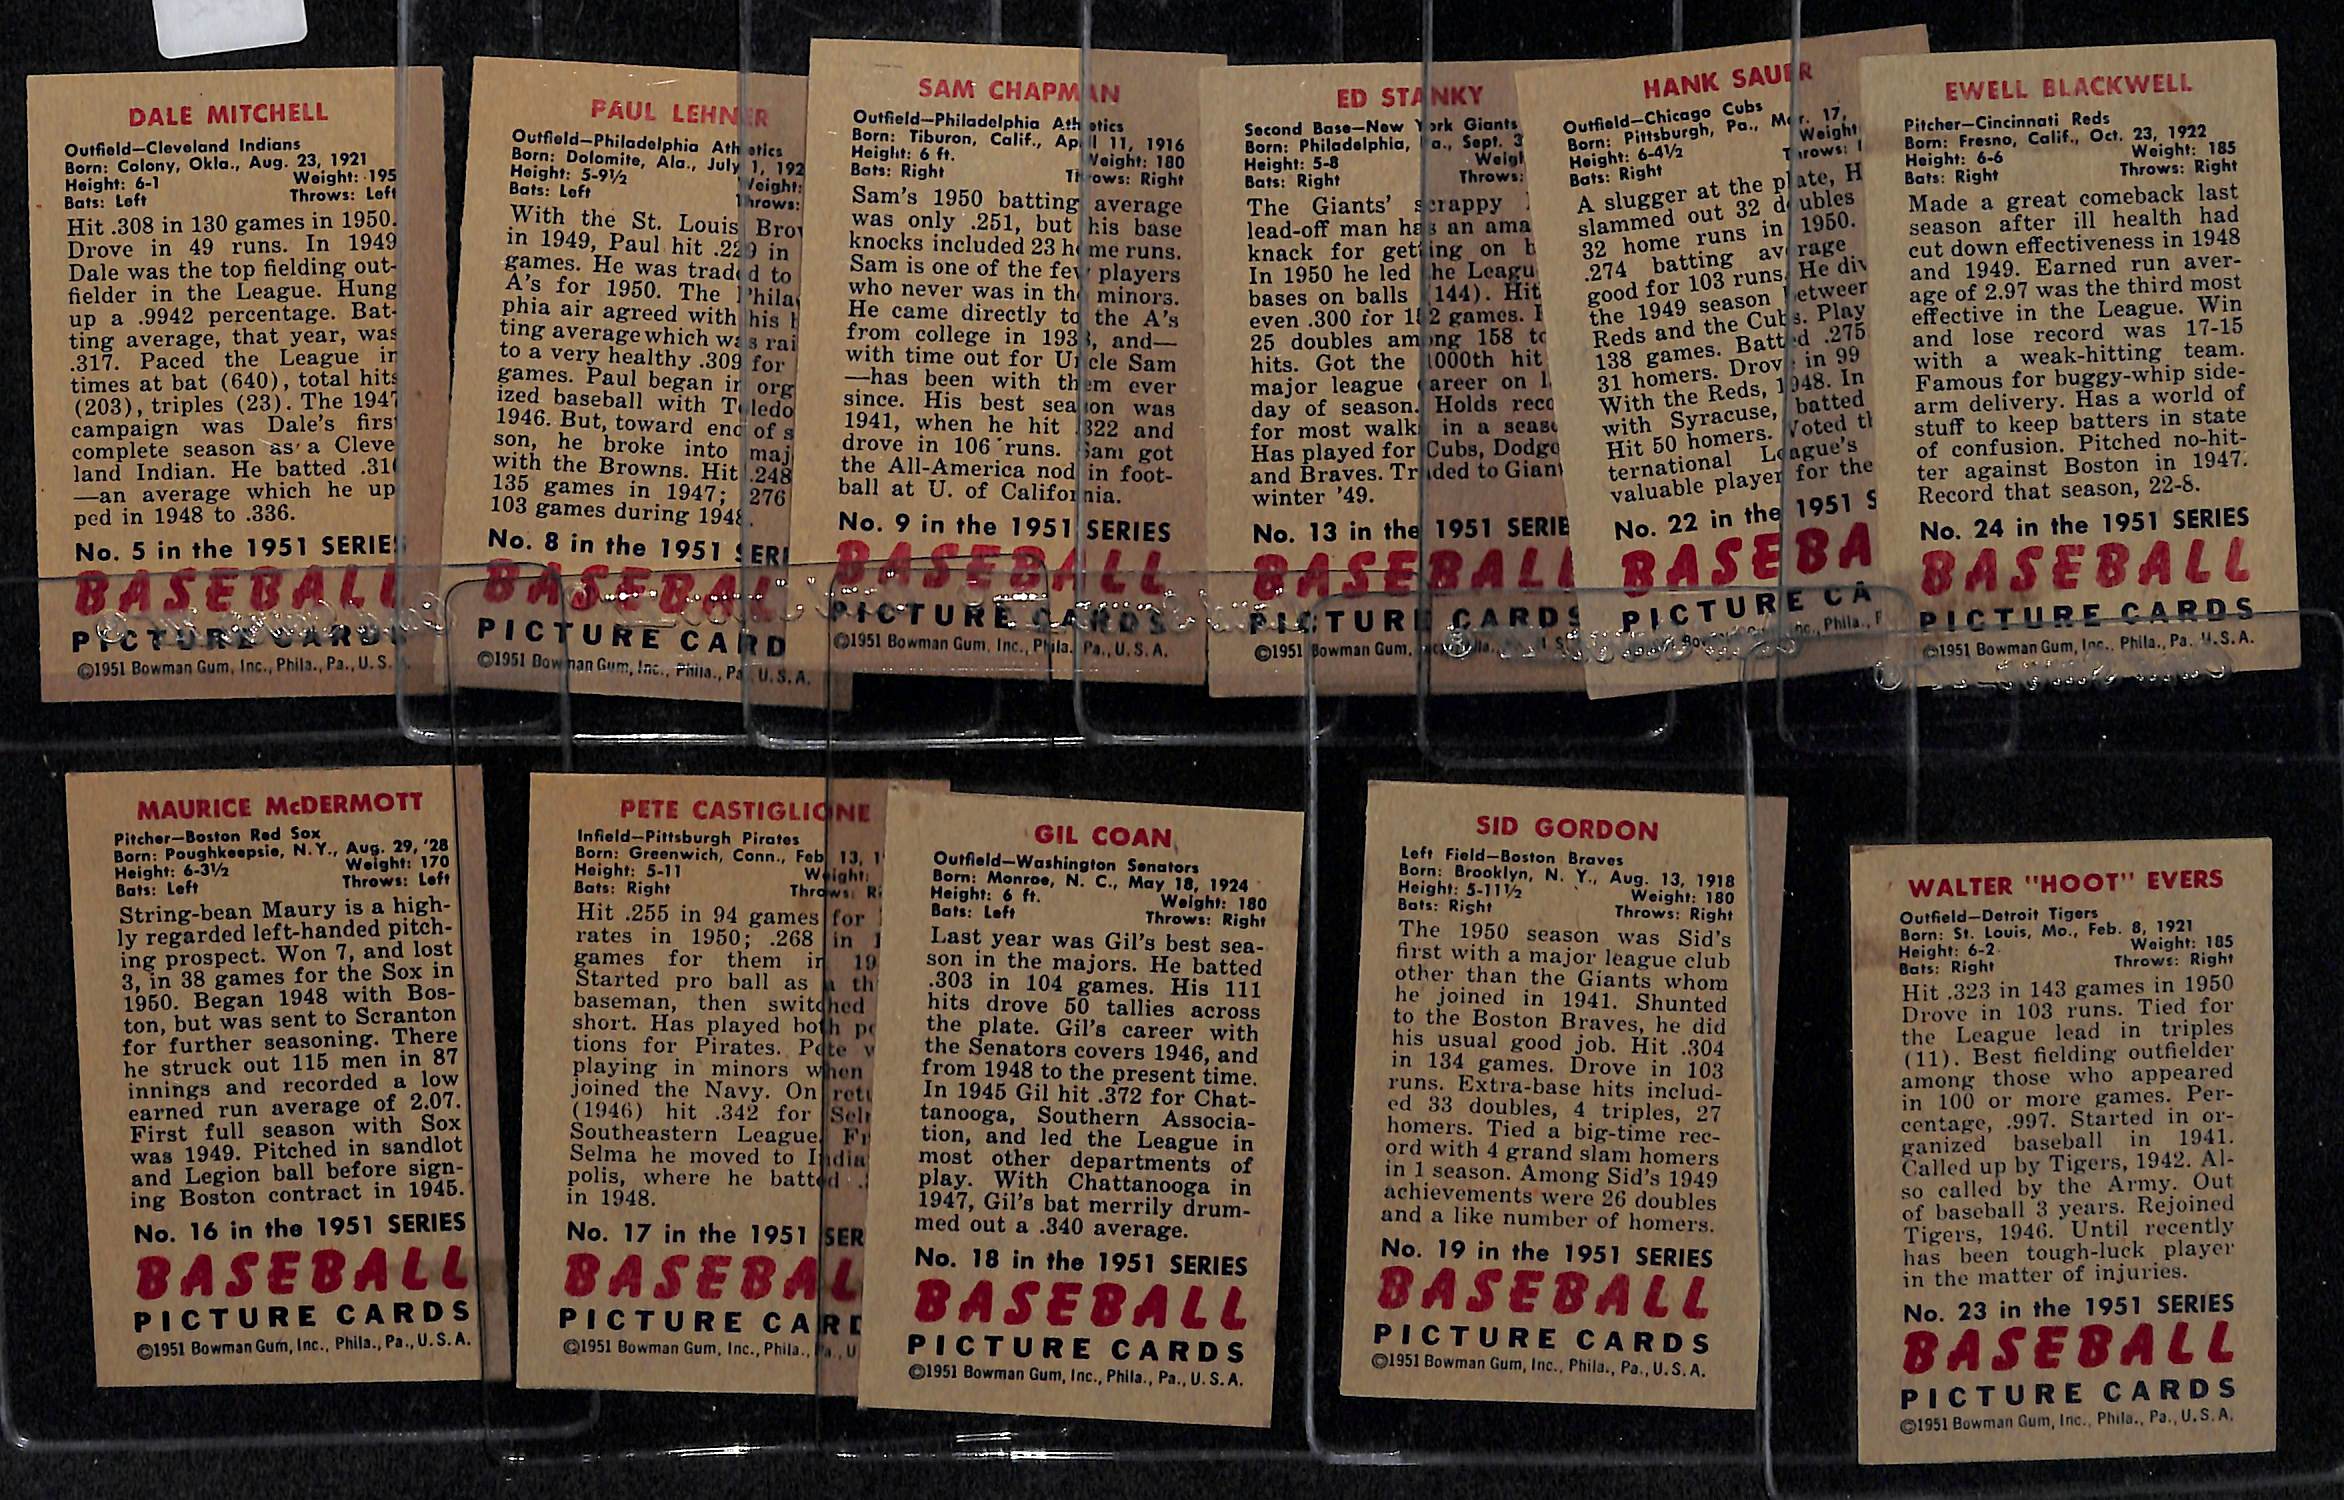 DALE MITCHELL
Outfield—Cleveland Indians
Born: Colony, Okla., Aug. 23, 1921
Height: 6-1 Weight: 195
Bats: Left Throws: Left
Hit .308 in 130 games in 1950.
Drove in 49 runs. In 1949
Dale was the top fielding out-
fielder in the League. Hung
up a .9942 percentage. Bat-
ting average, that year, was
.317. Paced the League in
times at bat (640), total hits
(203), triples (23). The 1947
campaign was Dale's first
complete season as a Cleve
land Indian. He batted .31
—an average which he up
ped in 1948 to .336.
No. 5 in the 1951 SERIES
BASEBALL
PICTURE CARDS
©1951 Bowman Gum, Inc., Phila., Pa., U.S.
PAUL LEHNER
Outfield—Philadelphia Athletics
Born: Dolomite, Ala., July 1, 192
Height: 5-9½ Weight:
Bats: Left Throws:
With the St. Louis Brow
in 1949, Paul hit .229 in
games. He was traded to
A's for 1950. The Philad
phia air agreed with his b
ting average which was rai
to a very healthy .309 for
games. Paul began in org
ized baseball with Toledo
1946. But, toward end of s
son, he broke into maj
with the Browns. Hit .248
135 games in 1947; 276
103 games during 1948.
No. 8 in the 1951 SERI
BASEBAL
PICTURE CARD
©1951 Bowman Gum, Inc., Phila., Pa., U.S.A.
SAM CHAPMAN
Outfield—Philadelphia Athletics
Born: Tiburon, Calif., April 11, 1916
Height: 6 ft. Weight: 180
Bats: Right Throws: Right
Sam's 1950 batting average
was only .251, but his base
knocks included 23 home runs.
Sam is one of the few players
who never was in the minors.
He came directly to the A's
from college in 1938, and—
with time out for Uncle Sam
—has been with them ever
since. His best season was
1941, when he hit .322 and
drove in 106 runs. Sam got
the All-America nod in foot-
ball at U. of California.
No. 9 in the 1951 SERIES
BASEBALL
PICTURE CARDS
©1951 Bowman Gum, Inc., Phila., Pa., U.S.A.
ED STANKY
Second Base—New York Giants
Born: Philadelphia, Pa., Sept. 3
Height: 5-8 Weigh
Bats: Right Throws:
The Giants' scrappy
lead-off man has an ama
knack for getting on b
In 1950 he led the Leagu
bases on balls (144). Hit
even .300 for 152 games.
25 doubles among 158 to
hits. Got the 1000th hit
major league career on l
day of season. Holds reco
for most walks in a seas
Has played for Cubs, Dodge
and Braves. Traded to Gian
winter '49.
No. 13 in the 1951 SERIE
BASEBALL
PICTURE CARDS
©1951 Bowman Gum,
HANK SAUER
Outfield—Chicago Cubs
Born: Pittsburgh, Pa., Mar. 17,
Height: 6-4½ Weight
Bats: Right Throws:
A slugger at the plate, H
slammed out 32 doubles
32 home runs in 1950.
.274 batting average
good for 103 runs. He div
the 1949 season between
Reds and the Cubs. Play
138 games. Batted .275
31 homers. Drove in 99
With the Reds, 1948. In
with Syracuse, batted
Hit 50 homers. Voted th
ternational League's
valuable player for the
No. 22 in the 1951 S
BASEBA
PICTURE CA
EWELL BLACKWELL
Pitcher—Cincinnati Reds
Born: Fresno, Calif., Oct. 23, 1922
Height: 6-6 Weight: 185
Bats: Right Throws: Right
Made a great comeback last
season after ill health had
cut down effectiveness in 1948
and 1949. Earned run aver-
age of 2.97 was the third most
effective in the League. Win
and lose record was 17-15
with a weak-hitting team.
Famous for buggy-whip side-
arm delivery. Has a world of
stuff to keep batters in state
of confusion. Pitched no-hit-
ter against Boston in 1947.
Record that season, 22-8.
No. 24 in the 1951 SERIES
BASEBALL
PICTURE CARDS
©1951 Bowman Gum, Inc., Phila., Pa., U.S.A.
MAURICE McDERMOTT
Pitcher—Boston Red Sox
Born: Poughkeepsie, N.Y., Aug. 29, '28
Height: 6-3½ Weight: 170
Bats: Left Throws: Left
String-bean Maury is a high-
ly regarded left-handed pitch-
ing prospect. Won 7, and lost
3, in 38 games for the Sox in
1950. Began 1948 with Bos-
ton, but was sent to Scranton
for further seasoning. There
he struck out 115 men in 87
innings and recorded a low
earned run average of 2.07.
First full season with Sox
was 1949. Pitched in sandlot
and Legion ball before sign-
ing Boston contract in 1945.
No. 16 in the 1951 SERIES
BASEBALL
PICTURE CARDS
©1951 Bowman Gum, Inc., Phila., Pa., U.S.A.
PETE CASTIGLIONE
Infield—Pittsburgh Pirates
Born: Greenwich, Conn., Feb. 13, 1
Height: 5-11 Weight:
Bats: Right Throws: Ri
Hit .255 in 94 games for
rates in 1950; .268 in 1
games for them in 19
Started pro ball as a th
baseman, then switched
short. Has played both po
tions for Pirates. Pete w
playing in minors when
joined the Navy. On retu
(1946) hit .342 for Selm
Southeastern League. Fr
Selma he moved to India
polis, where he batted
in 1948.
No. 17 in the 1951 SER
BASEBAL
PICTURE CARD
©1951 Bowman Gum, Inc., Phila., Pa., U
GIL COAN
Outfield—Washington Senators
Born: Monroe, N. C., May 18, 1924
Height: 6 ft. Weight: 180
Bats: Left Throws: Right
Last year was Gil's best sea-
son in the majors. He batted
.303 in 104 games. His 111
hits drove 50 tallies across
the plate. Gil's career with
the Senators covers 1946, and
from 1948 to the present time.
In 1945 Gil hit .372 for Chat-
tanooga, Southern Associa-
tion, and led the League in
most other departments of
play. With Chattanooga in
1947, Gil's bat merrily drum-
med out a .340 average.
No. 18 in the 1951 SERIES
BASEBALL
PICTURE CARDS
©1951 Bowman Gum, Inc., Phila., Pa., U.S.A.
SID GORDON
Left Field—Boston Braves
Born: Brooklyn, N. Y., Aug. 13, 1918
Height: 5-11½ Weight: 180
Bats: Right Throws: Right
The 1950 season was Sid's
first with a major league club
other than the Giants whom
he joined in 1941. Shunted
to the Boston Braves, he did
his usual good job. Hit .304
in 134 games. Drove in 103
runs. Extra-base hits includ-
ed 33 doubles, 4 triples, 27
homers. Tied a big-time rec-
ord with 4 grand slam homers
in 1 season. Among Sid's 1949
achievements were 26 doubles
and a like number of homers.
No. 19 in the 1951 SERIES
BASEBALL
PICTURE CARDS
©1951 Bowman Gum, Inc., Phila., Pa., U.S.A.
WALTER "HOOT" EVERS
Outfield—Detroit Tigers
Born: St. Louis, Mo., Feb. 8, 1921
Height: 6-2 Weight: 185
Bats: Right Throws: Right
Hit .323 in 143 games in 1950
Drove in 103 runs. Tied for
the League lead in triples
(11). Best fielding outfielder
among those who appeared
in 100 or more games. Per-
centage, .997. Started in or-
ganized baseball in 1941.
Called up by Tigers, 1942. Al-
so called by the Army. Out
of baseball 3 years. Rejoined
Tigers, 1946. Until recently
has been tough-luck player
in the matter of injuries.
No. 23 in the 1951 SERIES
BASEBALL
PICTURE CARDS
©1951 Bowman Gum, Inc., Phila., Pa., U.S.A.